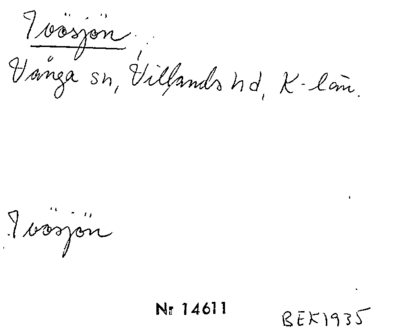 Ivösjön
Vånga sn, Villands hd, K-län.
Ivösjön
Nr 14611
BEK1935